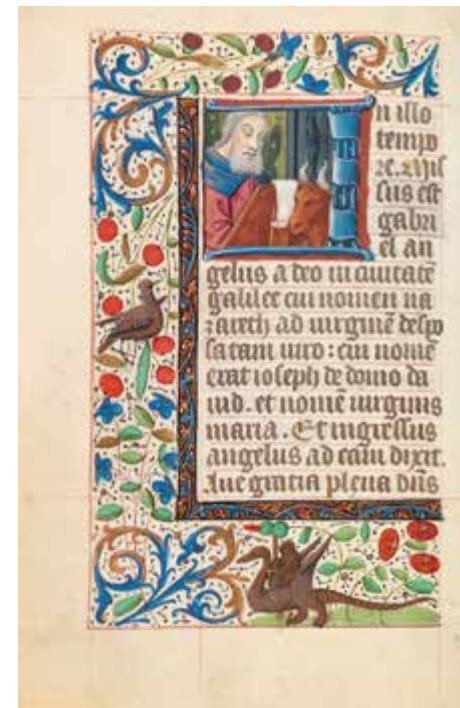 In illo
tempo
re. Mis
sus est
gabri
el an
gelus a deo in ciuitatē
galilee cui nomen na
zareth ad uirginē despo
satam uiro : cui nomē
erat ioseph de domo da
uid. et nomē uirginis
maria. Et ingressus
angelus ad eam dixit.
Aue gratia plena dn̄s